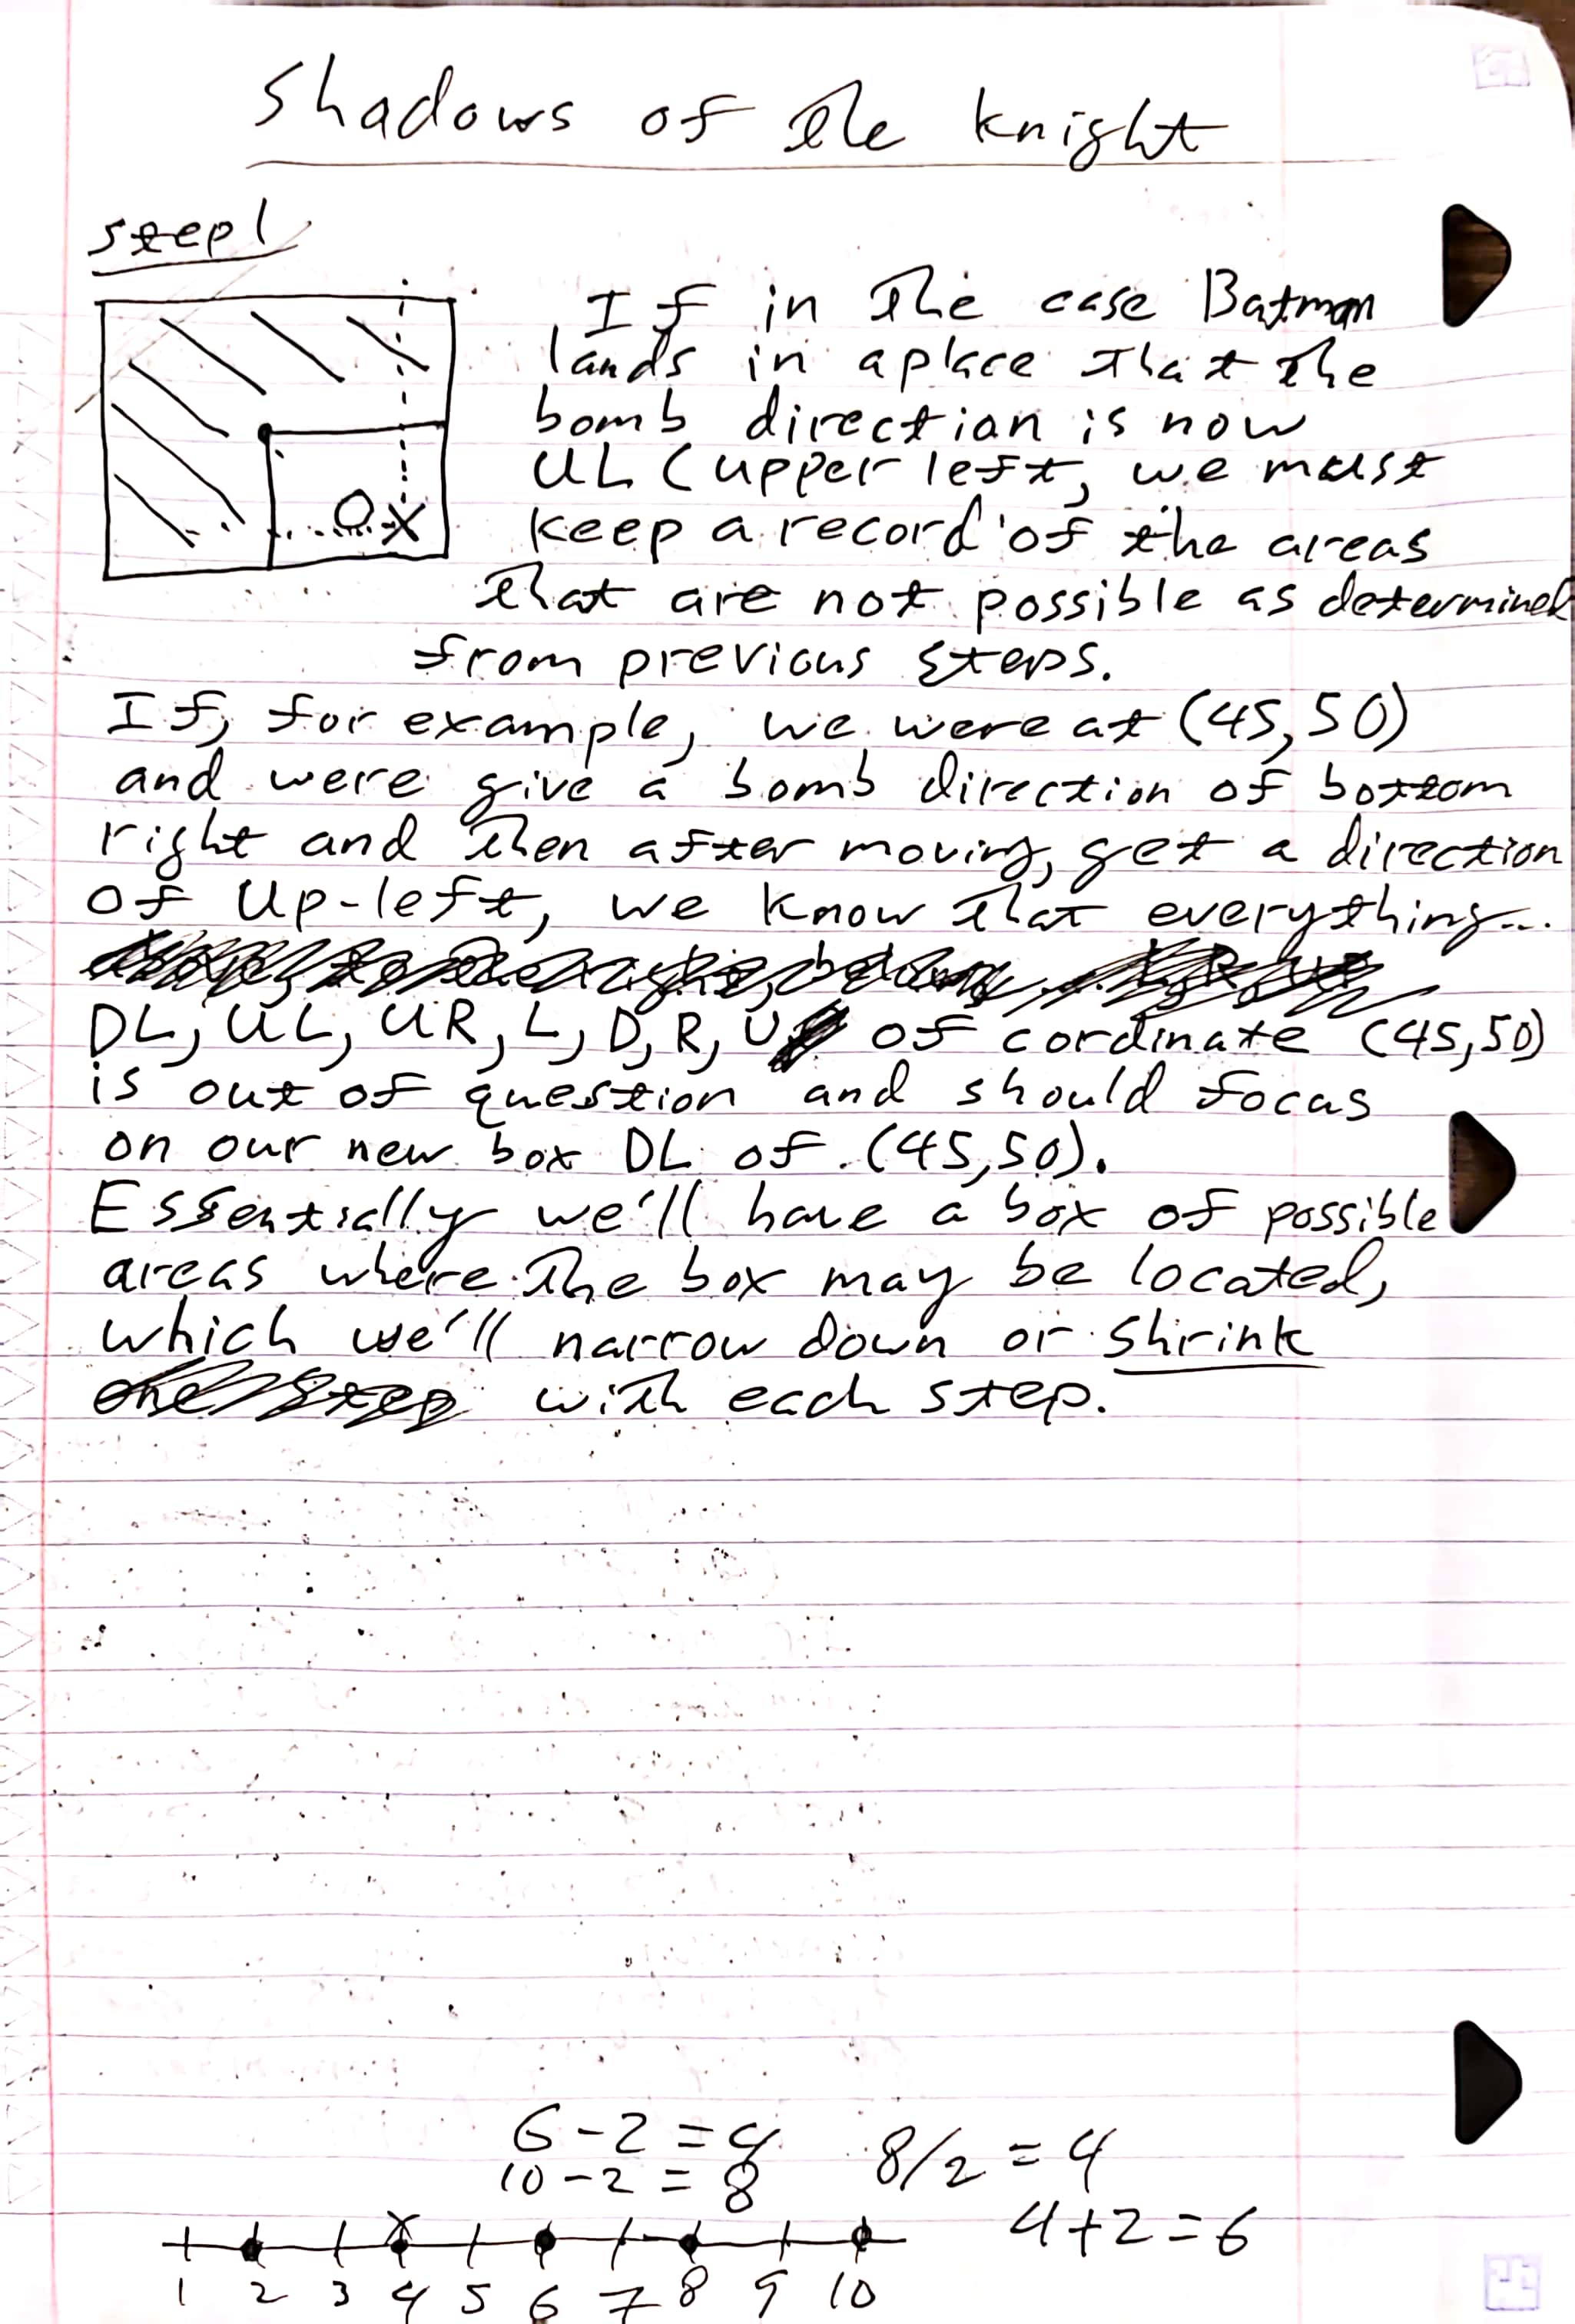 Shadows of the Knight
step 1
If in the case Batman
lands in a place that the
bomb direction is now
UL (upper left, we must
keep a record of the areas
that are not possible as determined
from previous steps.
If, for example, we were at (45,50)
and were give a bomb direction of bottom
right and then after moving, get a direction
of Up-left, we know that everything...
DL, UL, UR, L, D, R, U of cordinate (45,50)
is out of question and should focus
on our new box DL of (45,50).
Essentially we'll have a box of possible
areas where the box may be located,
which we'll narrow down or shrink
with each step.
6-2=4
10-2=8
8/2=4
4+2=6
x
1 2 3 4 5 6 7 8 9 10